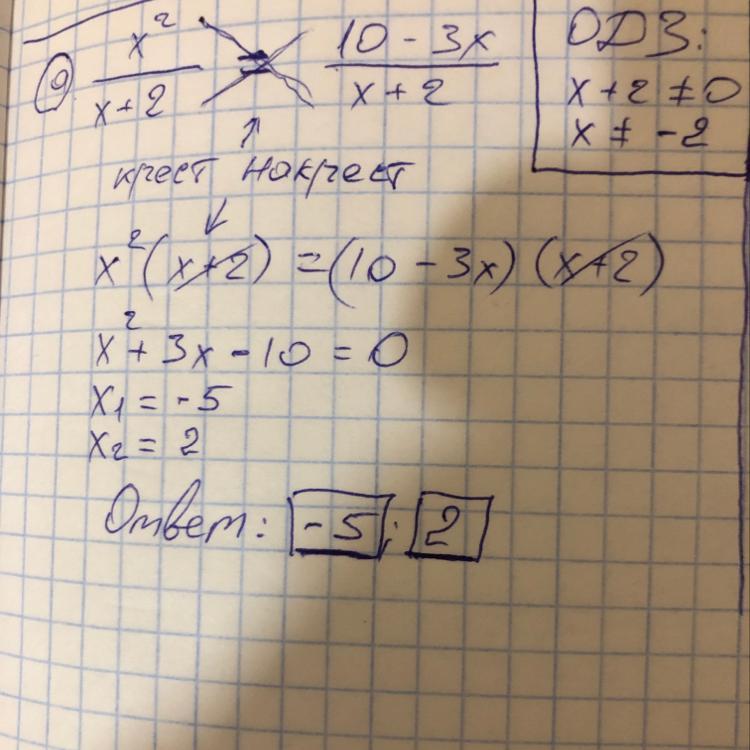 9) x² / (x+2) = (10-3x) / (x+2)
ОДЗ:
x+2 ≠ 0
x ≠ -2
крест накрест
x²(x+2) = (10-3x)(x+2)
x²+3x-10=0
x₁ = -5
x₂ = 2
Ответ: -5; 2